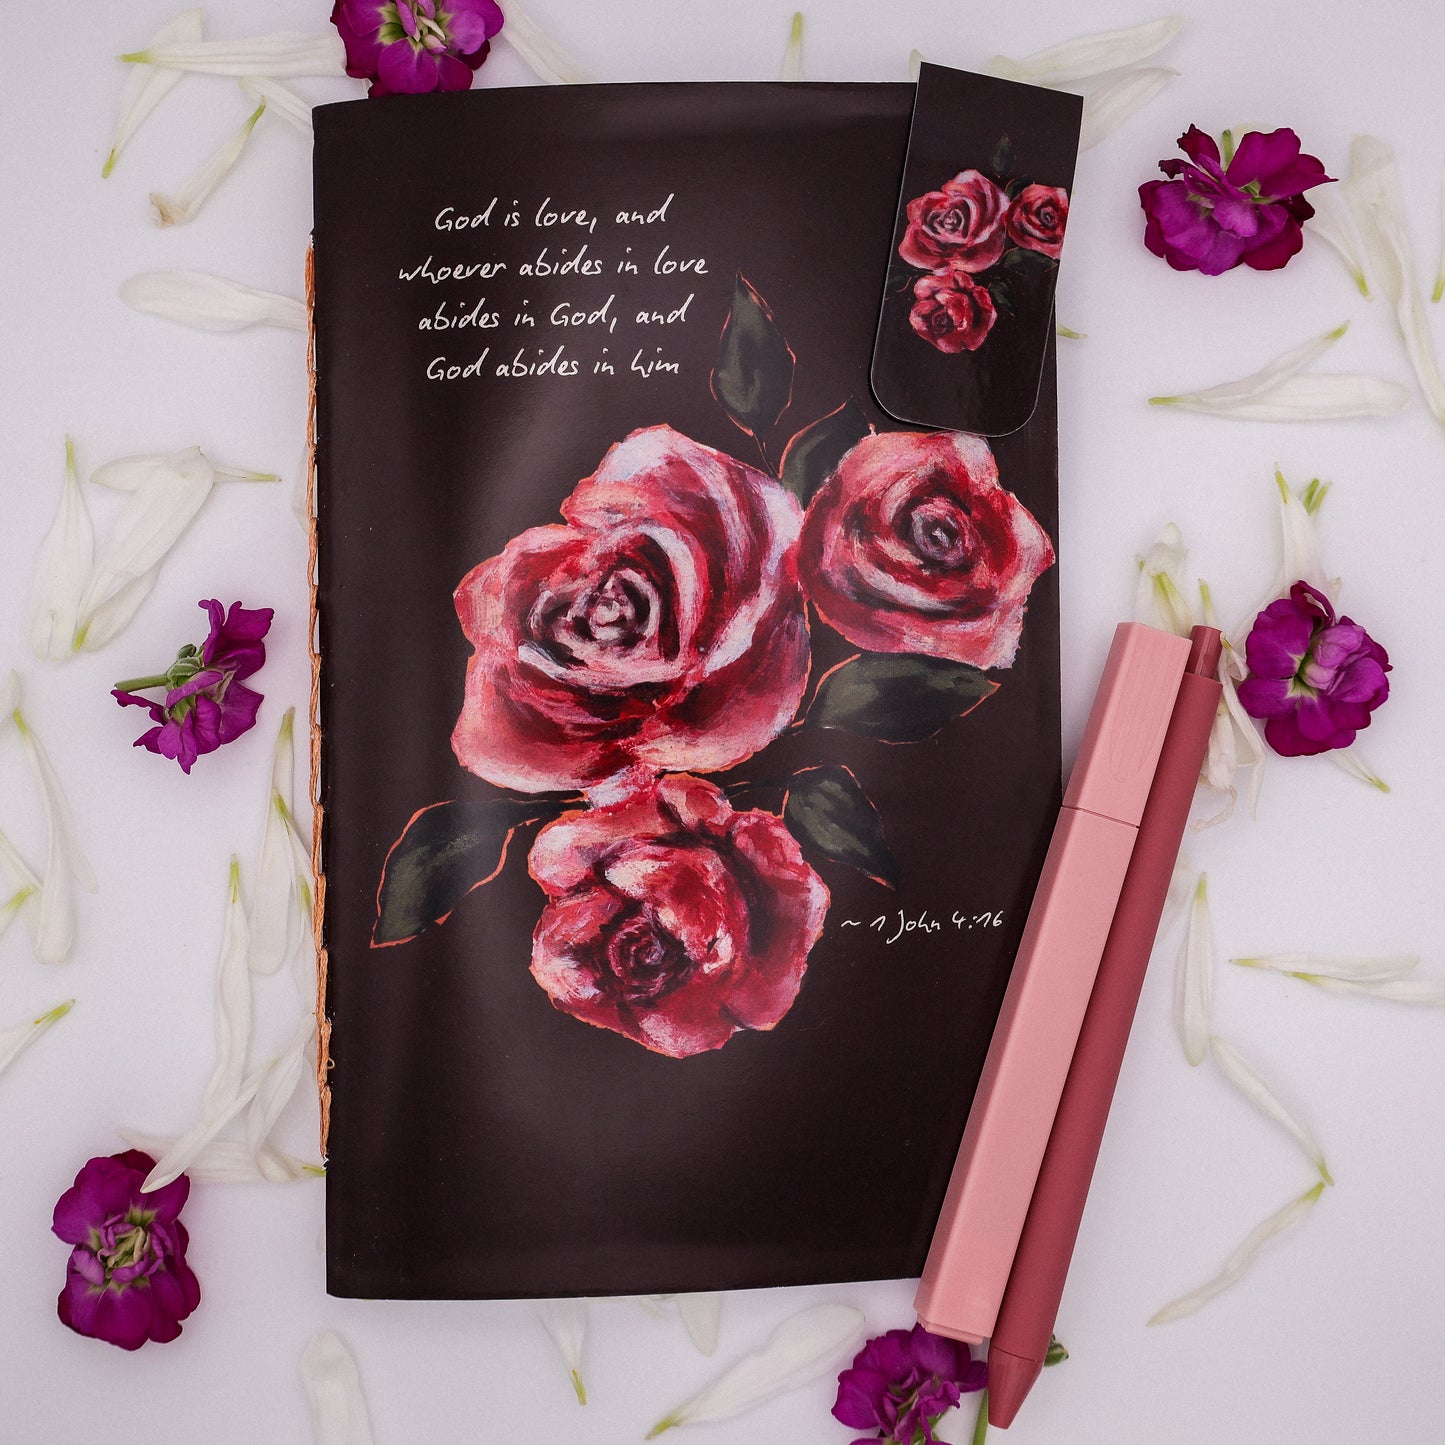 God is love, and
whoever abides in love
abides in God, and
God abides in him
~ 1 John 4:16